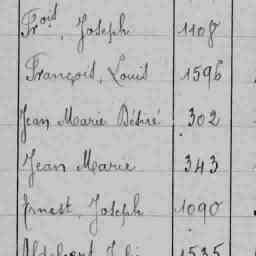 Frois, Joseph 1108
François, Louis 1596
Jean Marie Désiré 302
Jean Marie 343
Ernest, Joseph 1090
1535